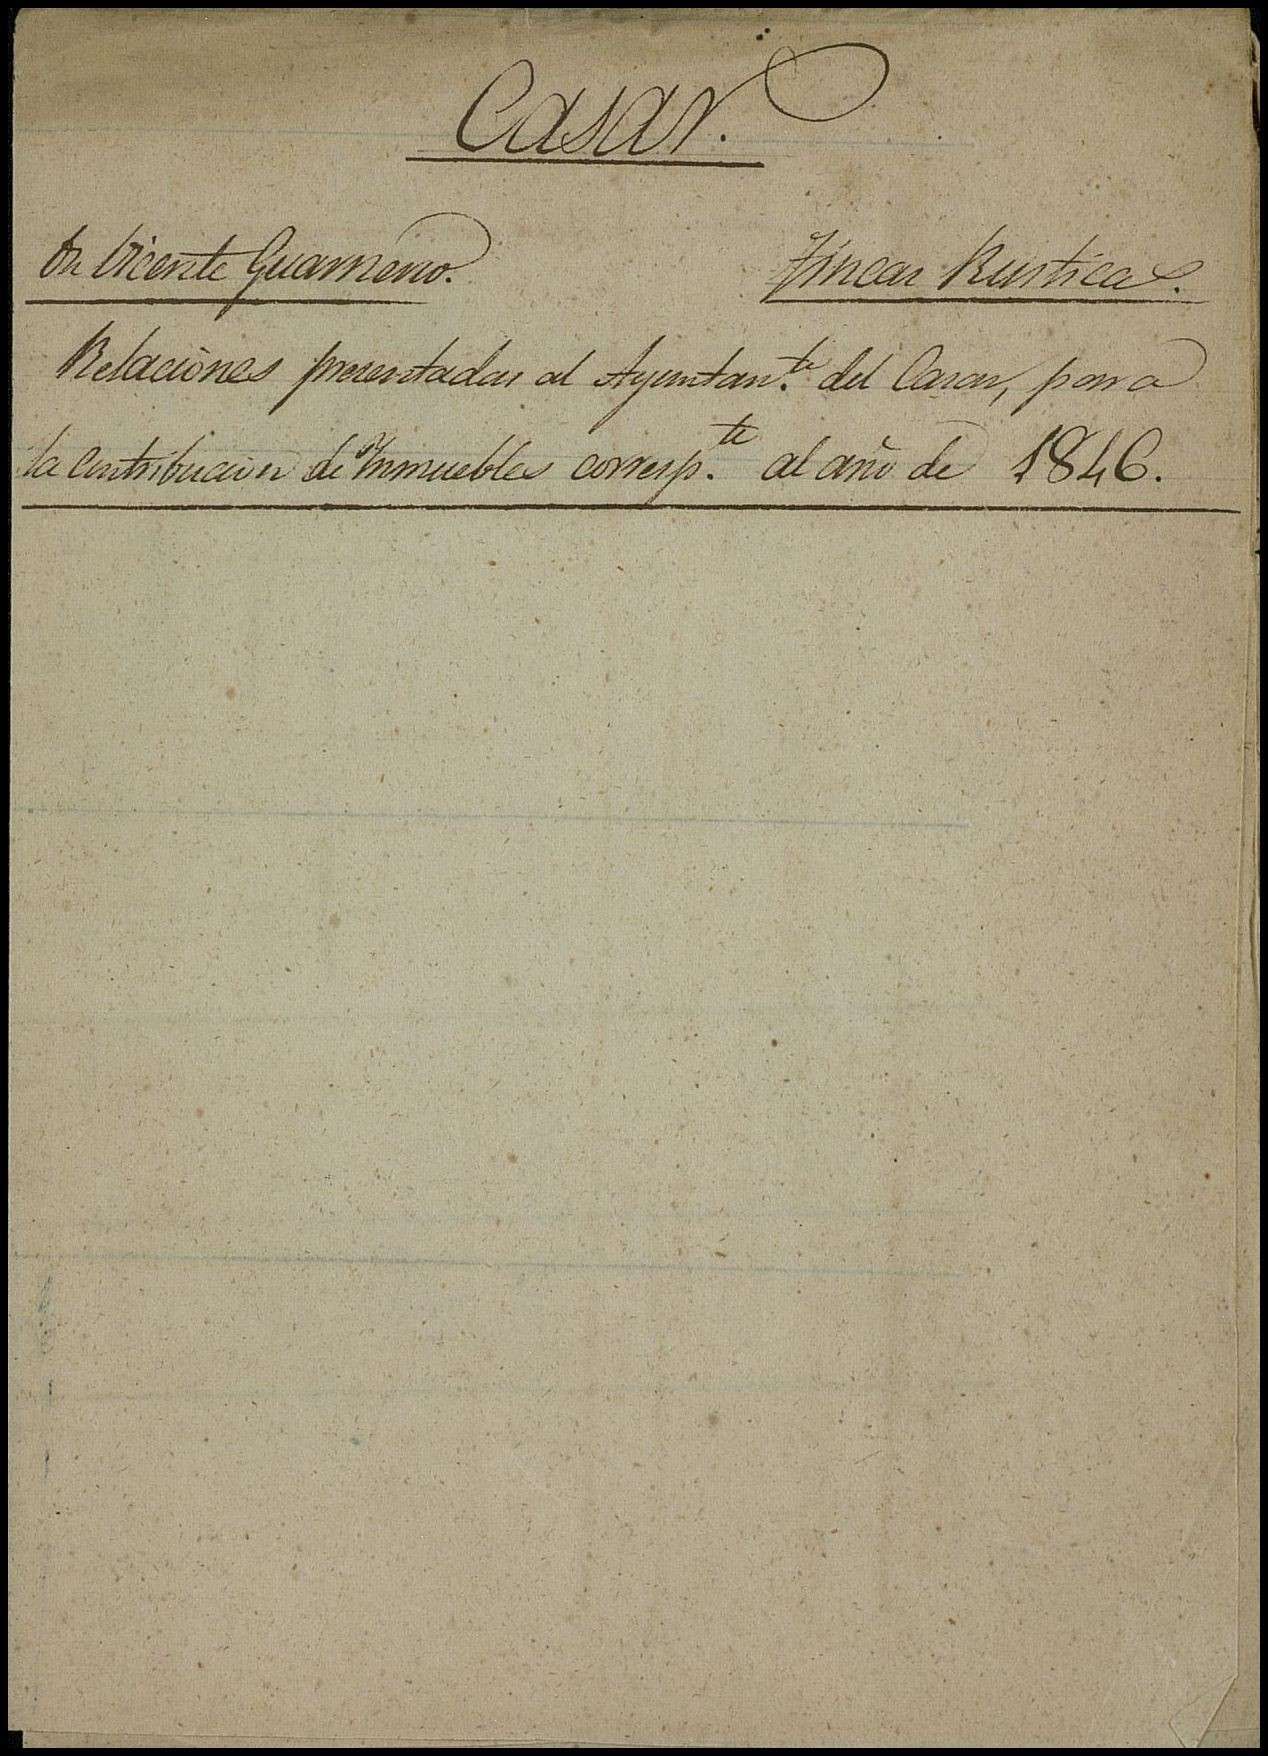 Casar.
Dn Vicente Guarnerio.
Fincas Rusticas.
Relaciones presentadas al Ayuntam.to del Casar, para
la contribucion de Inmuebles corresp.te al año de 1846.